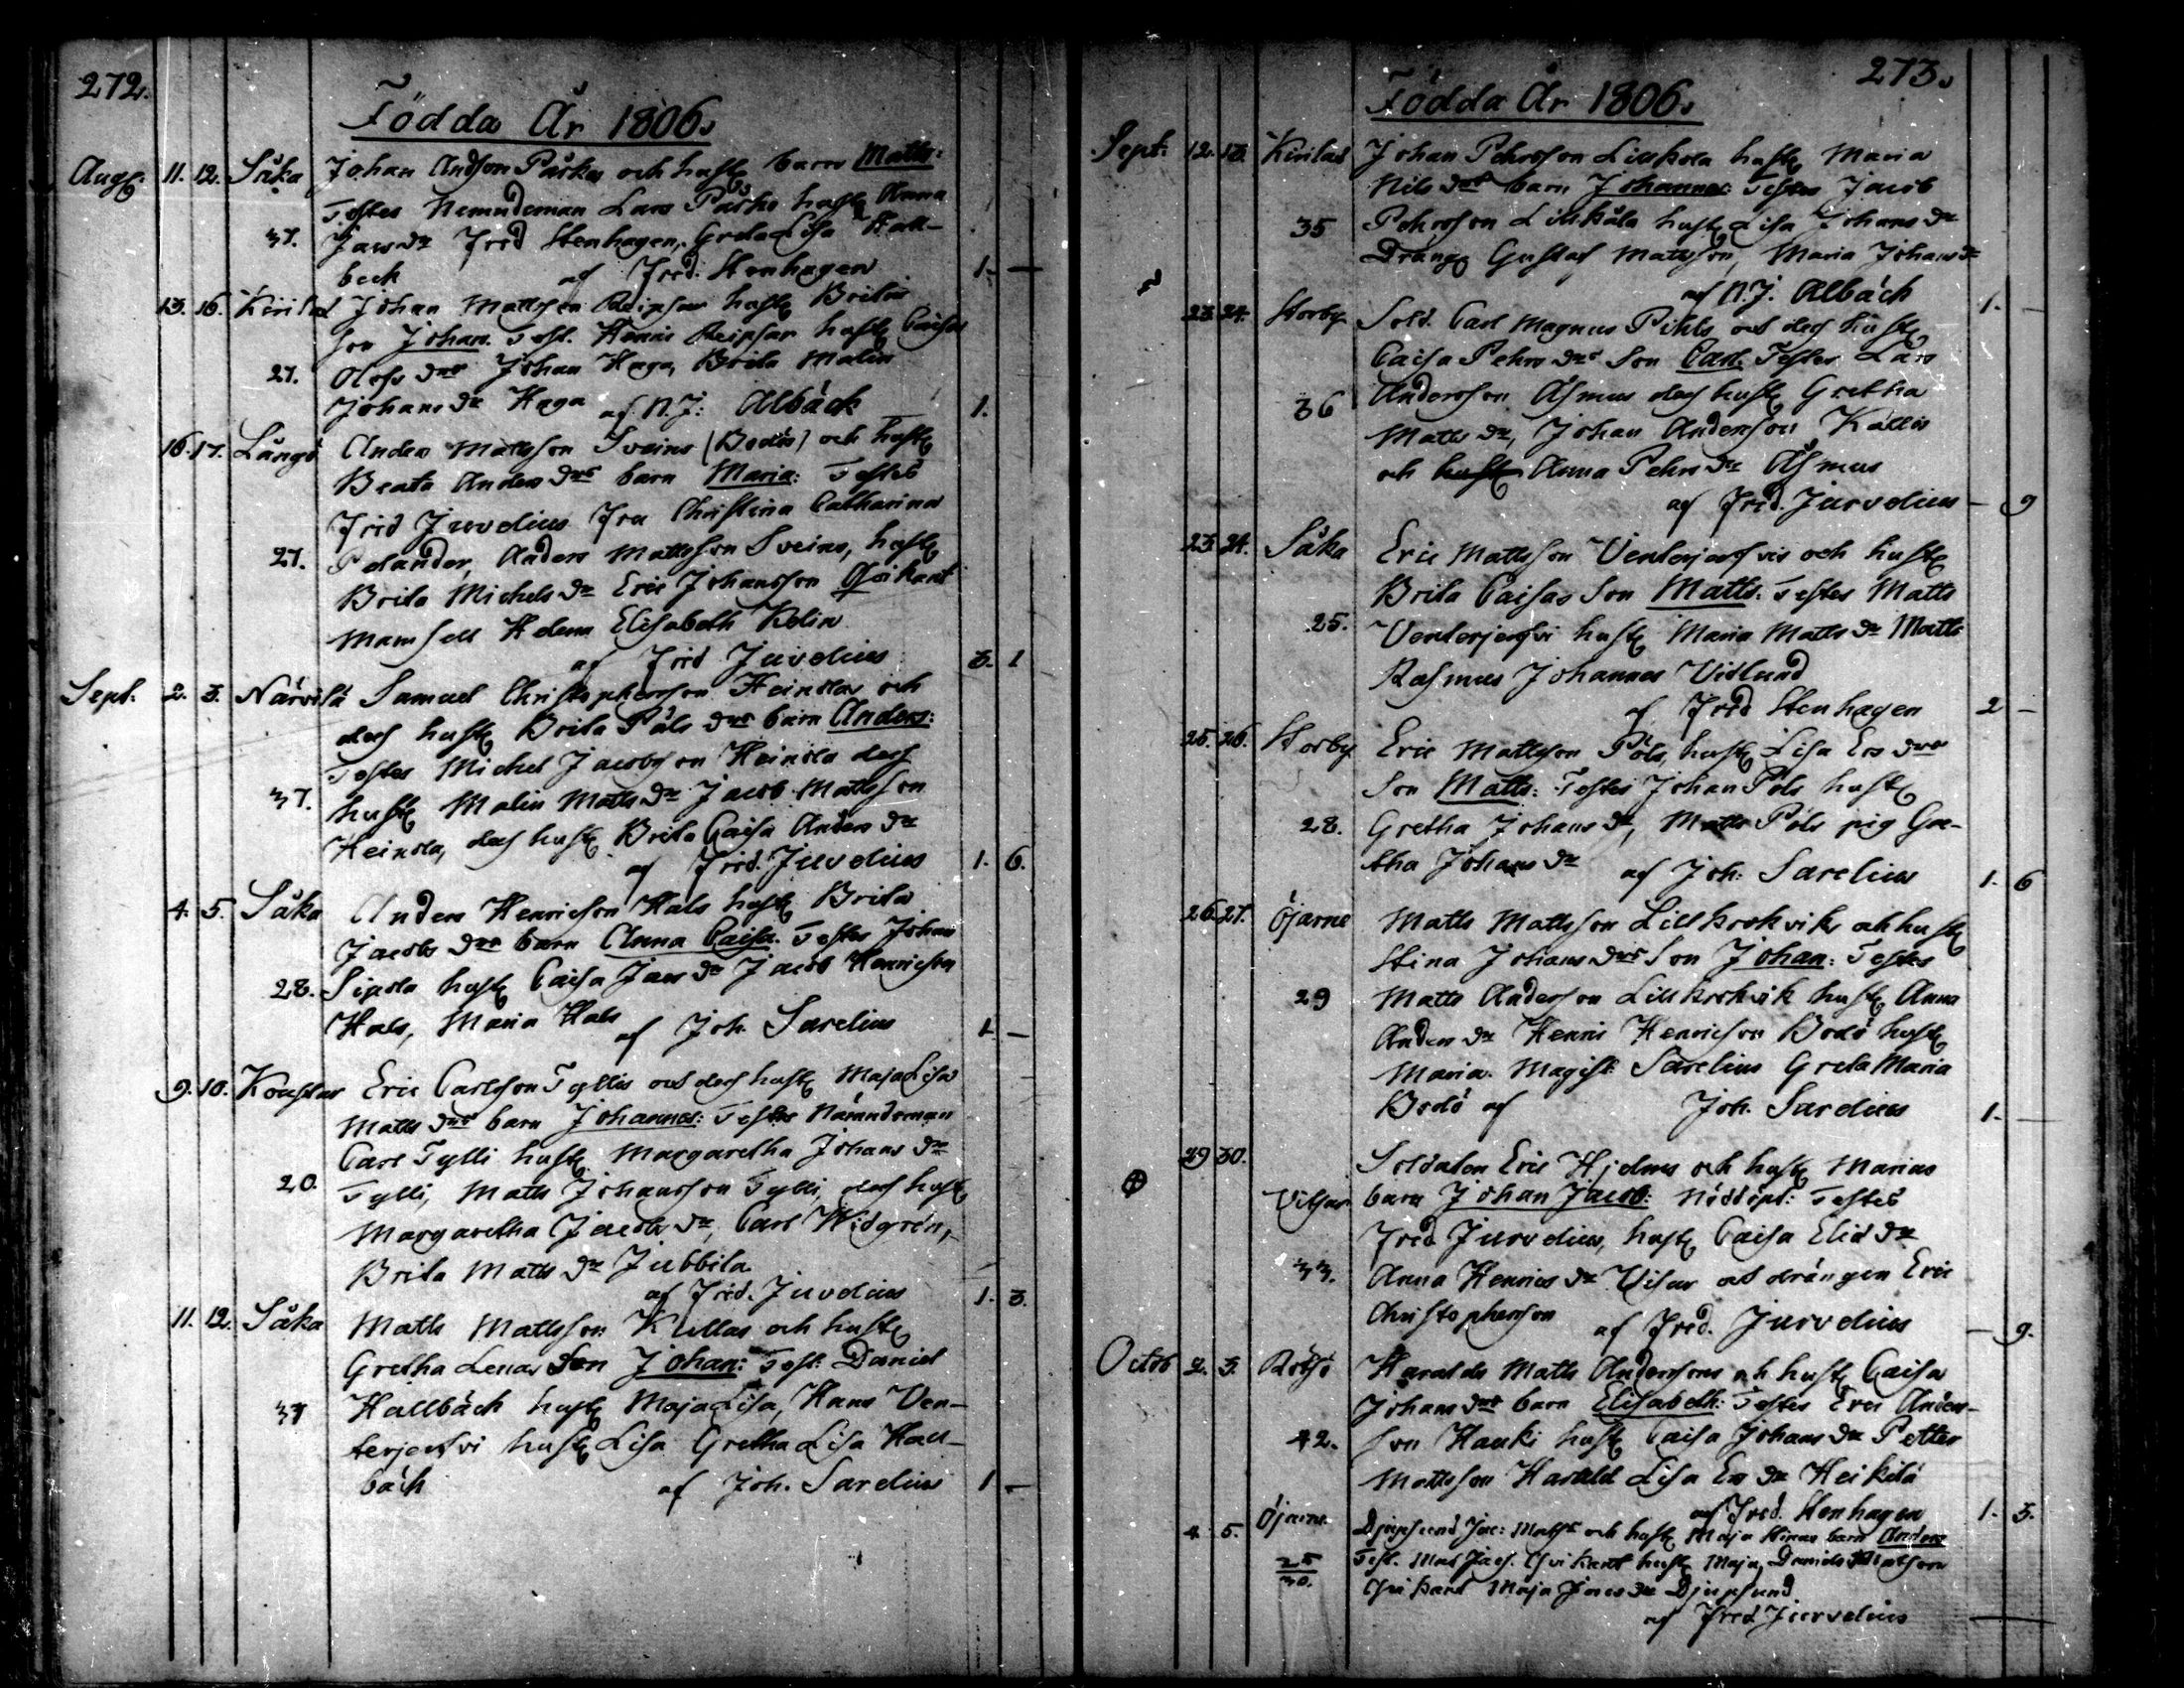 272.
Födda År 1806.
Aug: 11. 12. Såka Johan Andsson Påskas och hust barn Matts:
Testes Nemndeman Lars Påsko hust Anna
37. Jacs dr Fred Stenhagen, Greta Lisa Hall-
beck af Fred: Stenhagen 1. —
13. 16. Kirilax Johan Mattsson Reipsar hust Britas
son Johan. Test. Henric Reipsar hust Caisa
27. Olofs dr Johan Haga, Brita Malin
Johans dr Haga af N. J: Albäck 1.
16. 17. Långö Anders Mattsson Sveins (Bodö) och hust
Beata Anders drs barn Maria: Testes
Fred Jurvelius Fru Christina Catharina
27. Polander, Anders Mattsson Sveins, hust
Brita Michels dr Eric Johansson Qvikant
Mamsell Helena Elisabeth Relin
af Fred Juvelius 3. 1
Sept. 2. 3. Närvilä Samuel Christophersson Heinolas och
dess hust Brita Påls drs barn Anders:
Testes Michel Jacobsson Heinola dess
37. hust Malin Matts dr Jacob Mattsson
Heinola, dess hust Brita Caisa Anders dr
af Fred. Juvelius 1. 6.
4. 5. Såka Anders Henricson Hals hust Brita
Jacobs drs barn Anna Caisa. Testes Johan
28. Sipola hust Caisa Jacs dr Jacob Henricson
Hals, Maria Hals af Joh. Sarelius 1 —
9. 10. Koustar Eric Carlsson Tyllis och dess hust Maja Lisa
Matts drs barn Johannes: Testes Nämndeman
Carl Tylli hust Margaretha Johans dr
20. Tylli, Matts Johansson Tylli, dess hust
Margaretha Jacobs dr, Carl Widgrén,
Brita Matts dr Jubbila
af Fred. Juvelius 1. 3.
11. 12. Såka Matts Mattsson Kullas och hust
Gretha Lenas Son Johan: Test: Daniel
37 Hallbäck hust Maja Lisa, Hans Ven-
terjerfvi hust Lisa Gretha Lisa Hall-
bäch af Joh. Sarelius 1 —
273.
Födda År 1806.
Sept: 12. 13. Kirilax Johan Pehrsson Lillkola hust Maria
Nils drs barn Johannes: Testes Jacob
35 Pehrsson Lillkåla hust Lisa Johans dr
Dräng Gustaf Mattsson, Maria Johans dr
af N. J. Albäck 1. —
23. 24. Storby Sold. Carl Magnus Pihls och dess hust
Caisa Pehrs drs Son Carl. Testes Lars
36 Andersson Åsmus dess hust Gretha
Matts dr, Johan Andersson Kållis
och hust Anna Pehrs dr Åsmus
af Fred. Jurvelius — 9
23. 24. Såka Eric Mattsson Venterjerfvis och hust
Brita Caisas Son Matts. Testes Matts
25. Venterjerfvi hust Maria Matts dr Matts
Rasmus Johannes Vidlund
af Fred Stenhagen 2 —
25. 26. Storby Eric Mattsson Påls, hust Lisa Ers drs
Son Matts: Testes Johan Påls hust
28. Gretha Johans dr, Matts Påls pig Gre-
tha Johans dr af Joh: Sarelius 1. 6
26. 27. Öjarne Matts Mattsson Lillkrokviks och hust
Stina Johans drs Son Johan: Testes
29 Matts Andersson Lillkrokvik hust Anna
Anders dr Henric Henricson Bodö hust
Maria. Magist: Sarelius Greta Maria
Bodö af Joh. Sarelius 1. —
29 30. Soldaten Eric Hjelms och hust Marias
Vitsar barn Johan Jacob: Nöddöpt: Testes
Fred Jurvelius, hust Caisa Elis dr
33. Anna Henrics dr Visar och drängen Eric
Christophersson af Fred. Jurvelius — 9.
Octob 2. 3. Rötsö Haralds Matts Anderssons och hust Caisa
Johans drs barn Elisabeth: Testes Eric Anders-
42. son Hauki hust Caisa Johans dr Petter
Mattsson Harald Lisa Ers dr Heikilä
af Fred. Stenhagen 1. 3.
4. 5. Öjarne Djupsund Jac: Matss och hust Maja Stinas barn Anders
25 Test. Mat Jacs. Qvikant hust Maja, Daniel Matsson
30. Qvikant Maja Jacs dr Djupsund
af Fred Jurvelius —